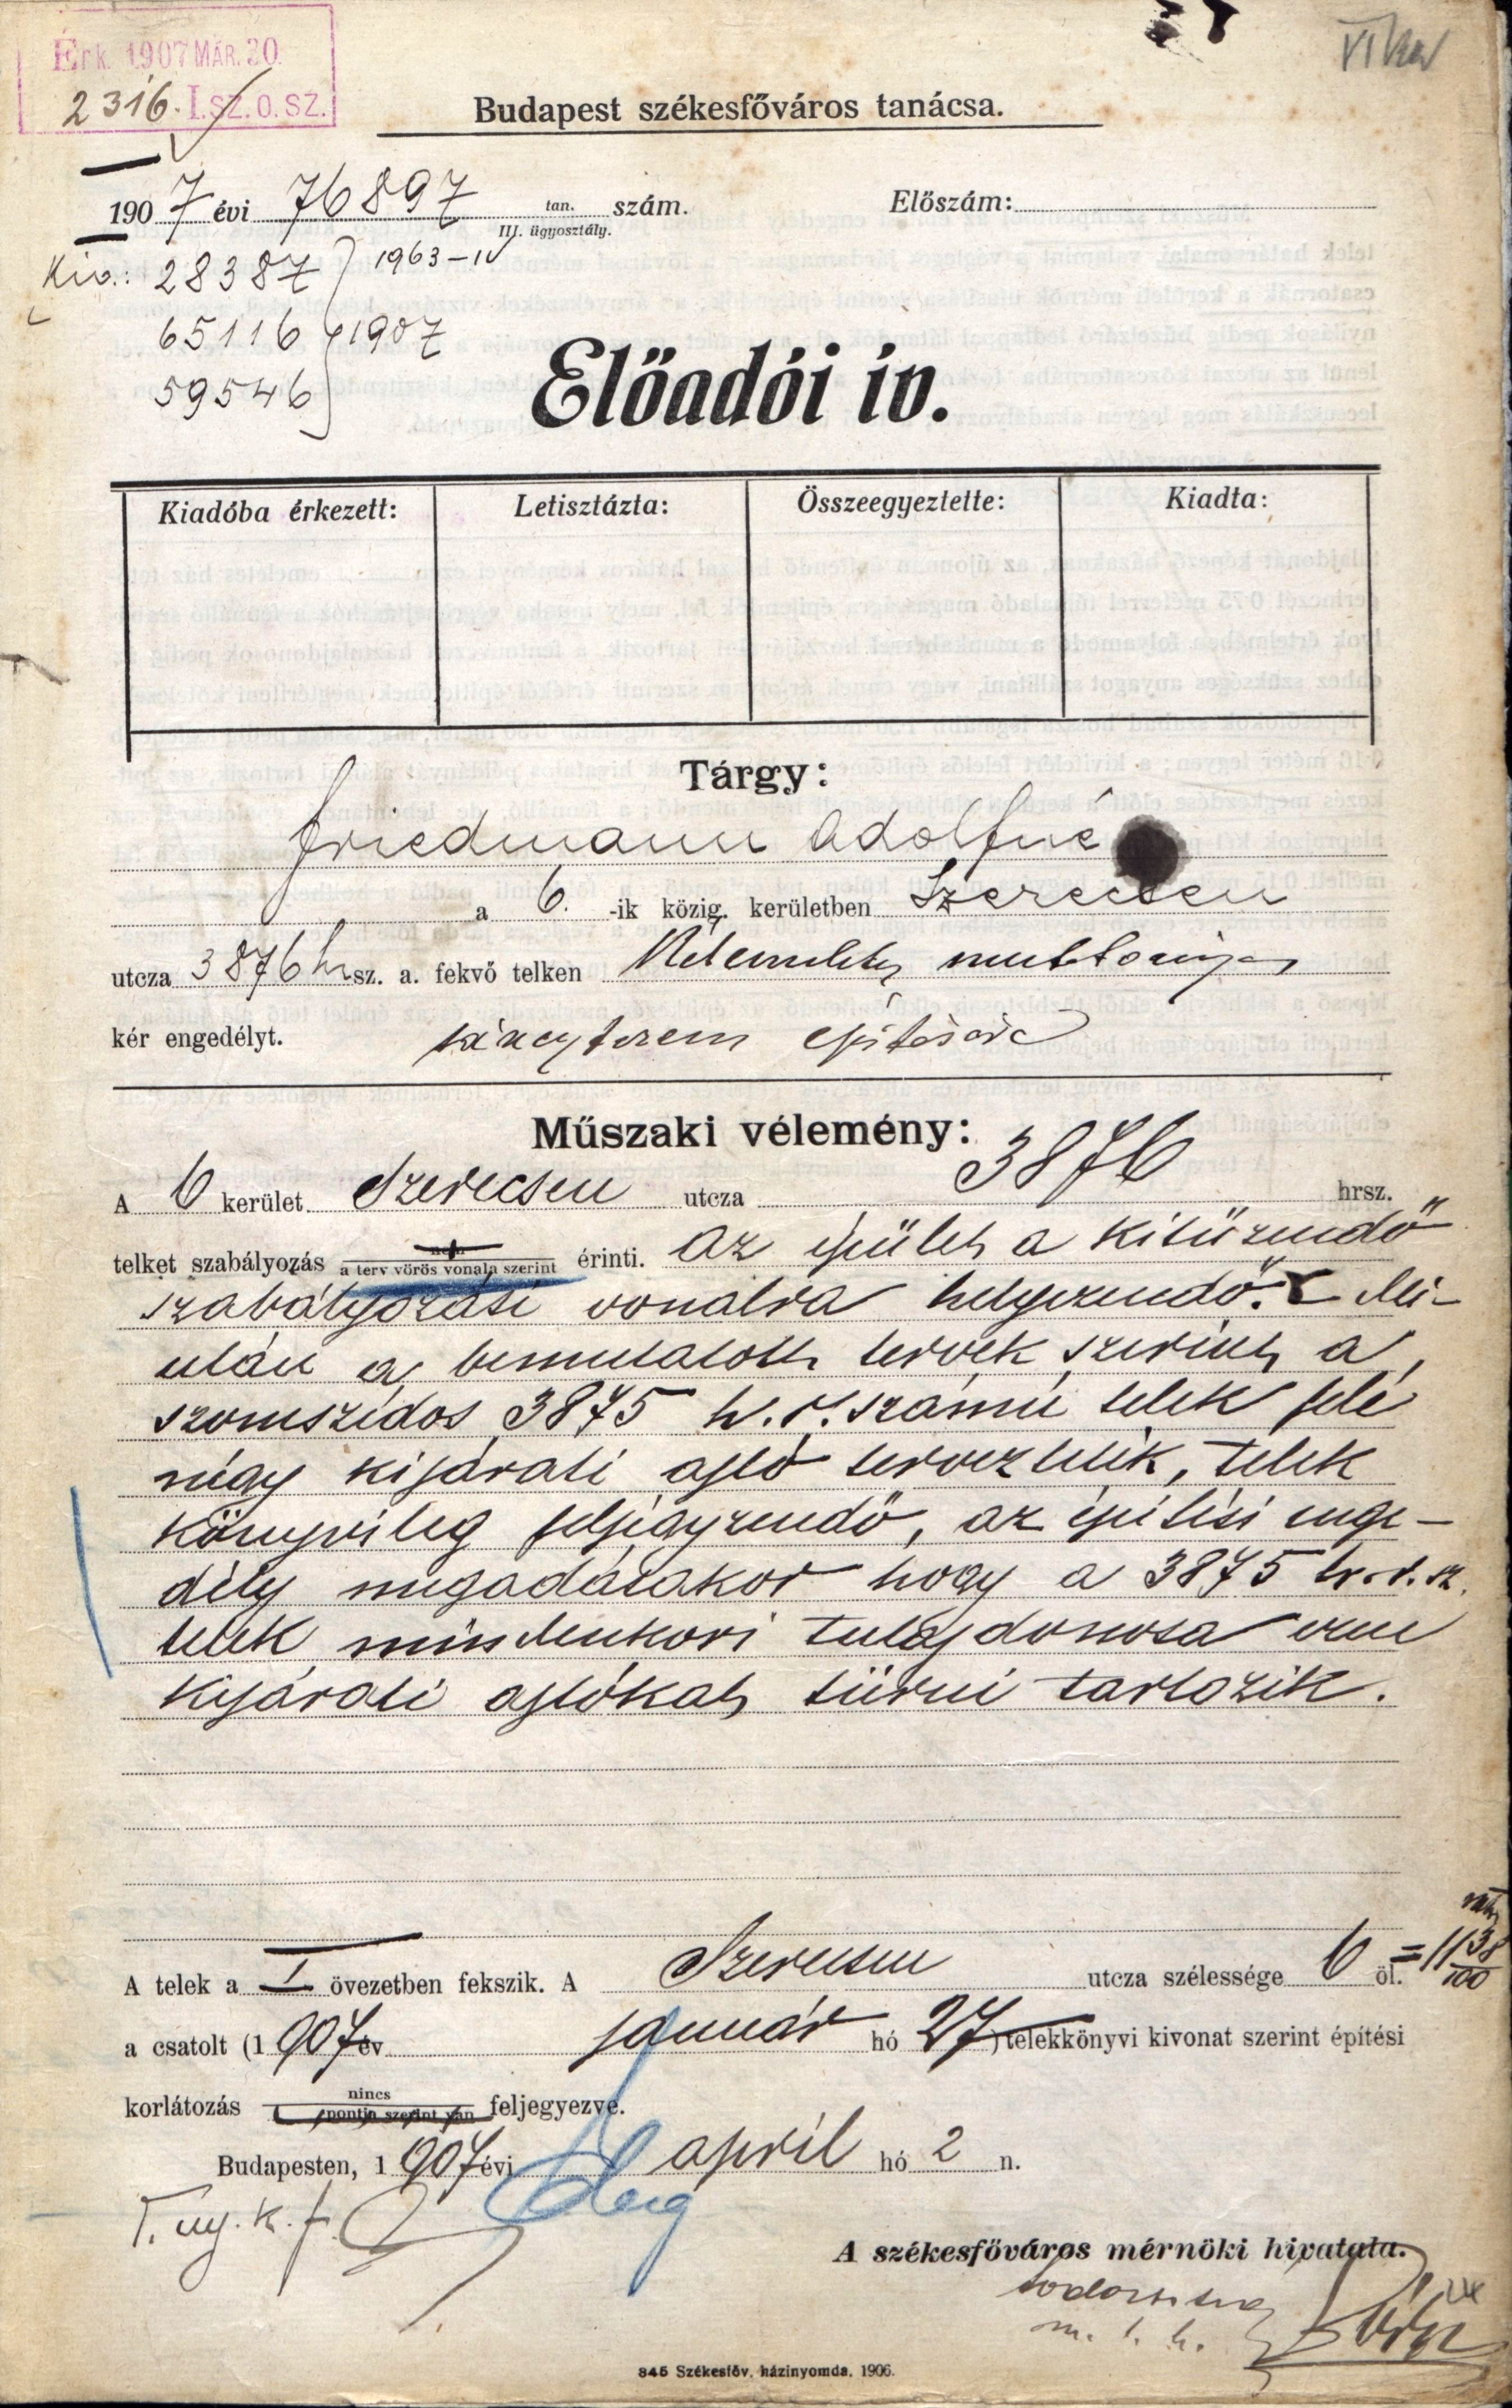 Érk. 1907 MÁR. 20.
2316. I. SZ. O. SZ.
Budapest székesfőváros tanácsa.
1907 évi 76897 tan. szám.
III. ügyosztály.
Előszám:
28387 1963-IV
65116 1907
59546
Előadói ív.
Kiadóba érkezett: Letisztázta: Összeegyeztette: Kiadta:
Tárgy:
Friedmann Adolfné
a 6. -ik közig. kerületben Szerecsen
utcza 3876 hrsz. a. fekvő telken
kér engedélyt. táncterem építésére
Műszaki vélemény:
A 6 kerület Szerecsen utcza 3876 hrsz.
telket szabályozás a terv vörös vonala szerint érinti. Az épület a kitűzendő
szabályozási vonalra helyezendő. Mi-
után a bemutatott tervek szerint a
szomszédos 3875 h.r. számú telek felé
négy kijárati ajtó terveztetik, telek
könyvileg feljegyzendő, az építési enge-
dély megadásakor hogy a 3875 hr. sz.
telek mindenkori tulajdonosa ezen
kijárati ajtókat tűrni tartozik.
A telek a I övezetben fekszik. A Szerecsen utcza szélessége 6 öl. = 11 38/100
a csatolt (1907 év január hó 27) telekkönyvi kivonat szerint építési
korlátozás nincs feljegyezve.
pontja szerint van
Budapesten, 1907 évi april hó 2 n.
A székesfőváros mérnöki hivatala.
845 Székesfőv. házinyomda. 1906.